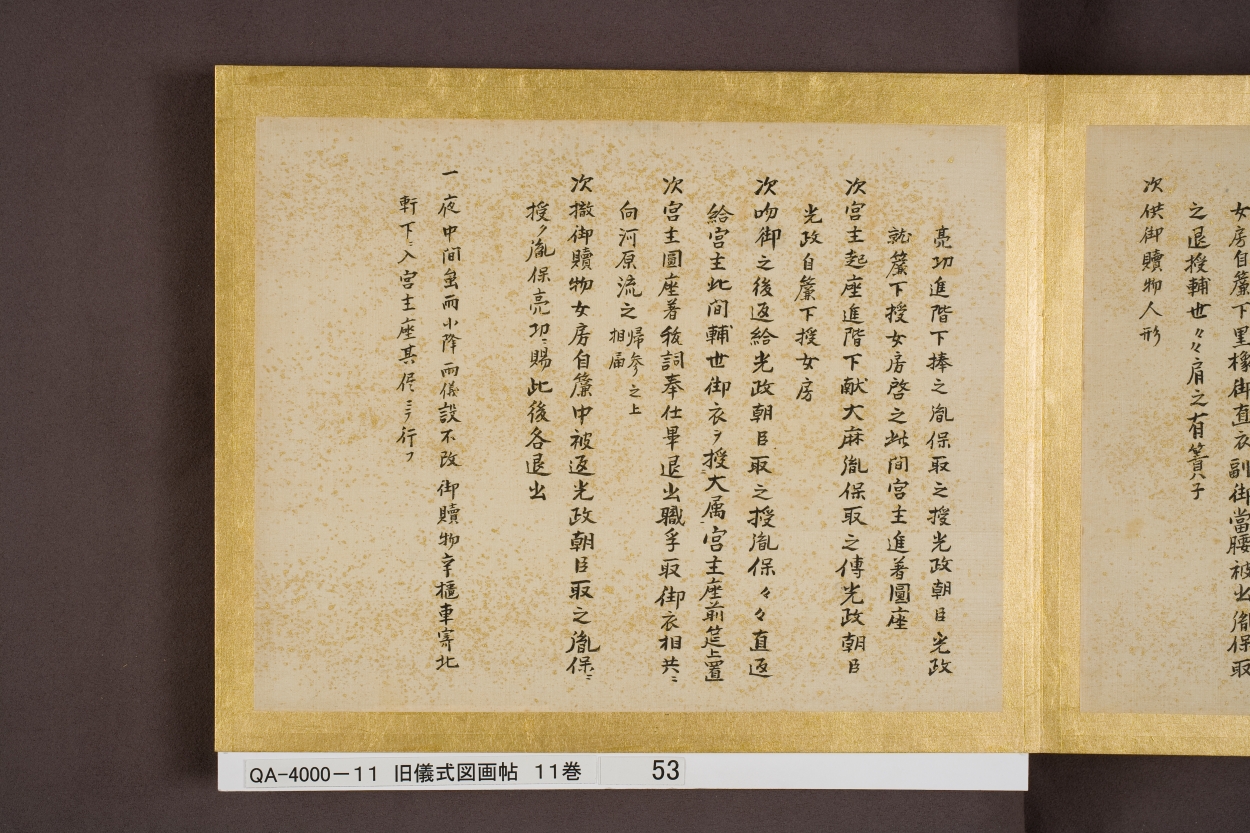 女房自簾下里橡御直衣副御當腰被出胤保取
之退授輔世〻〻肩之有簀子
次供御贖物人形
亮功進階下捧之胤保取之授光政朝臣光政
就簾下授女房啓之此間宮主進著圓座
次宮主起座進階下献大麻胤保取之傳光政朝臣
光政自簾下授女房
次吻御之後返給光政朝臣取之授胤保々々直返
給宮主此間輔世御衣ヲ授大属宮主座前筵上置
次宮主圓座著祓詞奉仕畢退出職孚取御衣相共ニ
向河原流之帰参之上相届
次撤御贖物女房自簾中被返光政朝臣取之胤保ニ
授ク胤保亮功ニ賜此後各退出
一夜中間至雨小降雨儀設不改御贖物辛櫃車寄北
軒下ニ入宮主座其侭ニテ行フ
QA-4000-11 旧儀式図画帖 11巻 53